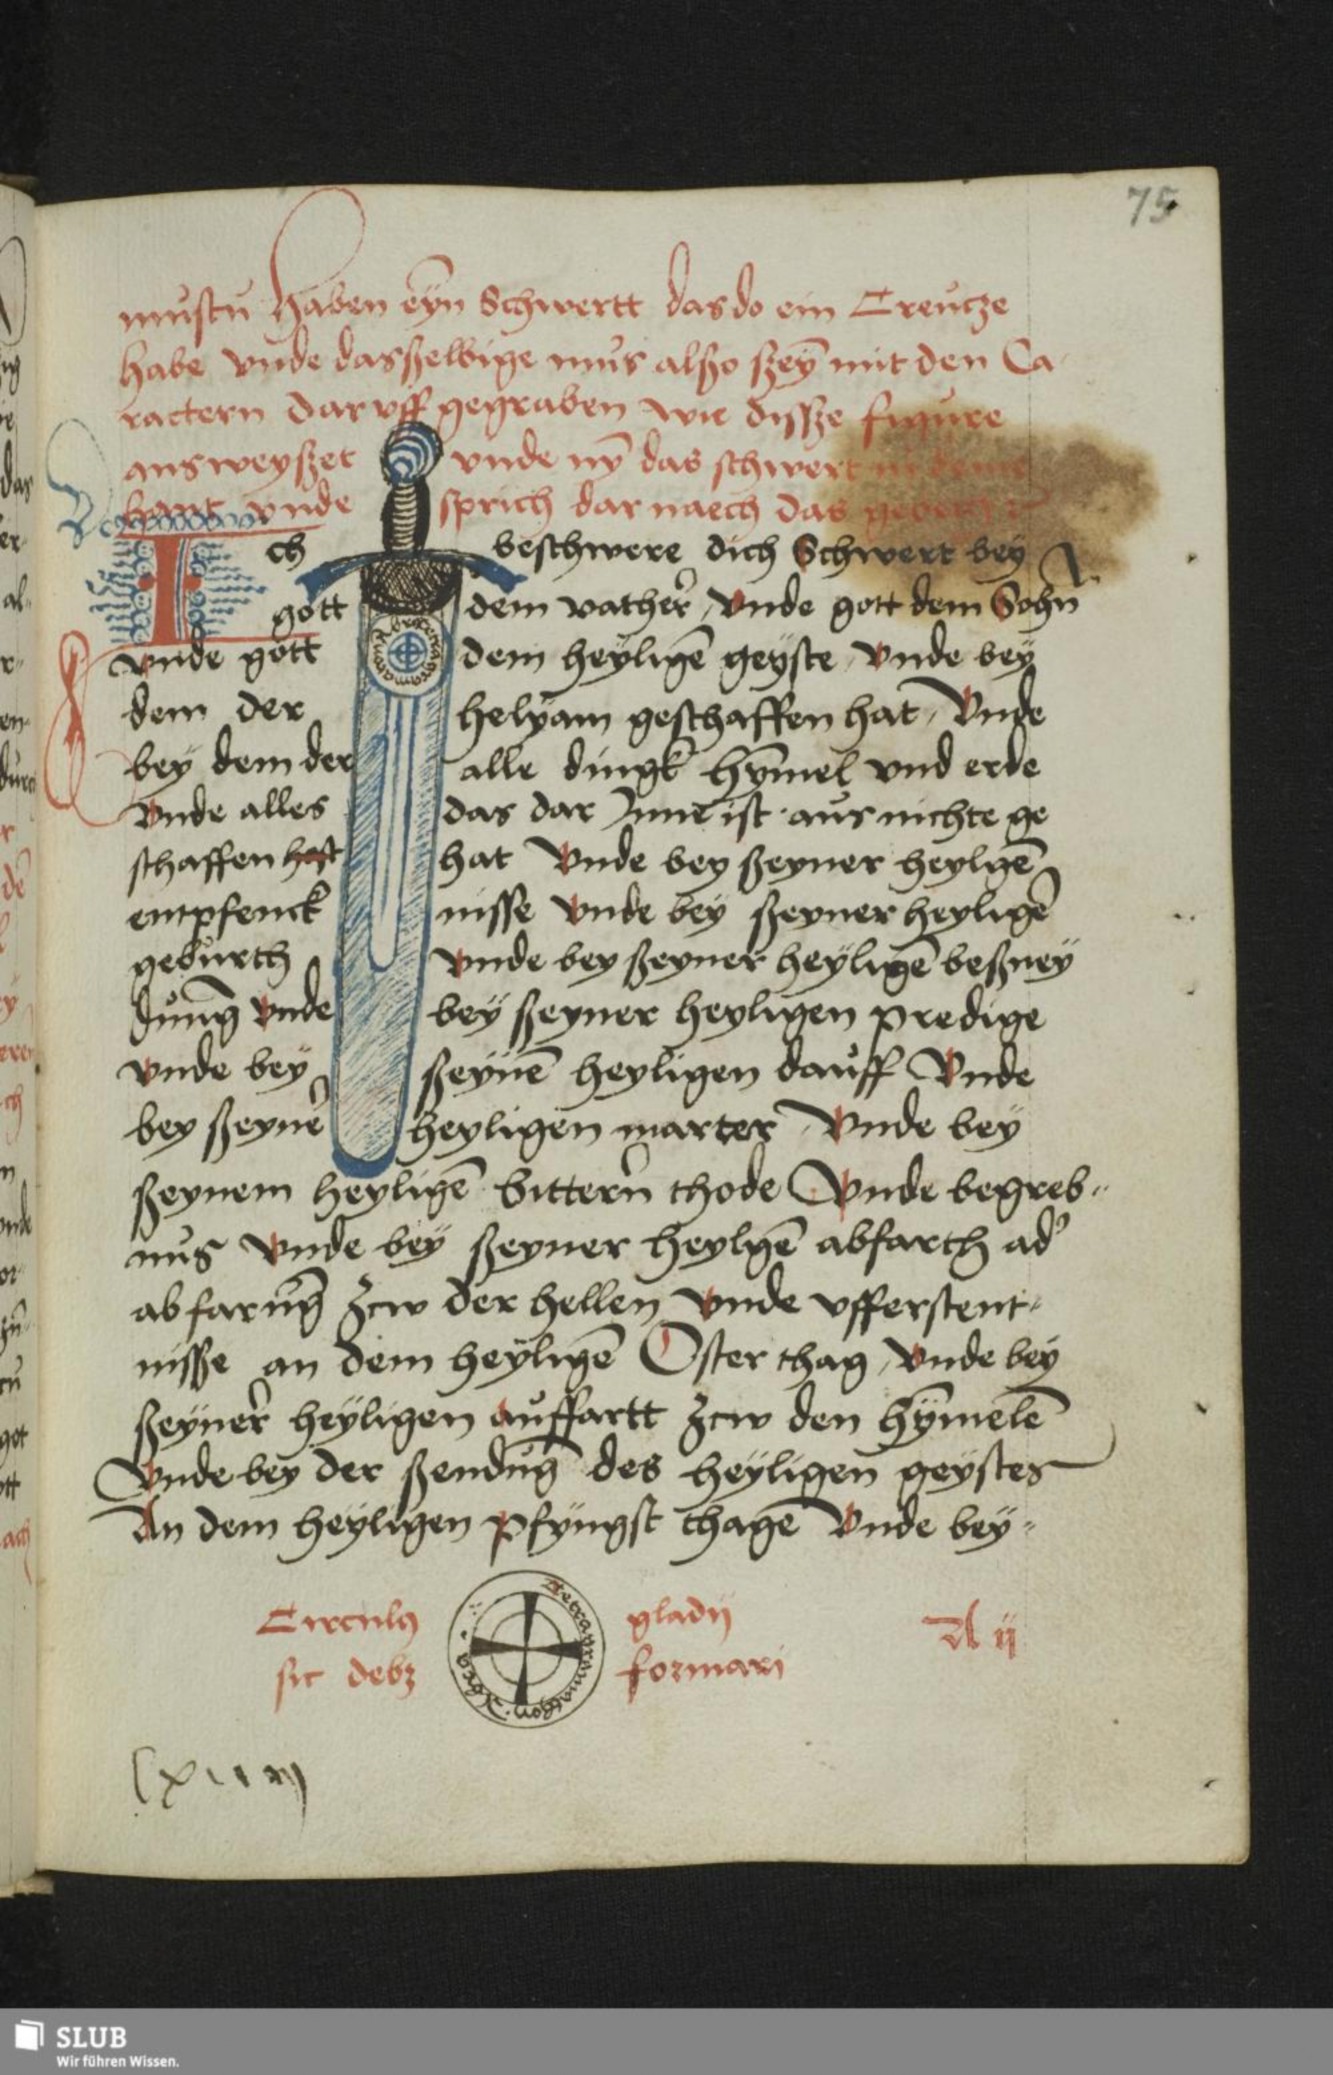 75
mustu haben eyn Schwertt das do ein Creucze
habe vnde dasselbige mus also szeȳ mit den Ca
ractern dar vff gegraben wie dissze figure
ausweyszet vnde nȳ das schwert in deine
hant vnde sprich dar naech das
Ich beschwere dich Schwert bey
gott dem vather vnde gott dem Sohn
vnde gott dem heyligē geyste vnde bey
dem der helyam geschaffen hat Vnde
bey dem der alle dingk hȳmel vnd erde
Vnde alles das dar Inne ist aus nichte ge
schaffen hast hat Vnde bey szeyner heylgē
entpfenck nisse vnde bey szeyner heyligē
geburth vnde bey szeyner heyligē beszney
dung vnde bey szeyner heyligen predige
vnde bey szeynē heyligen dauff Vnde
bey szeyner heyligen marter Vnde bey
szeynem heyligē bittern thode Vnde begreb
nus Vnde bey szeyner heylgē abfarth ad'
abfarūg zcw der hellen vnde vfferstent
nisse an dem heyligē Oster thag vnde bey
szeyner heyligen auffartt zcw den hȳmelē
Vnde bey der szendūg des heyligen geystes
An dem heyligen pfyngst thagē Vnde bey
Circulus gladij
sic debz formari
Tetragrammathon. Agla
A ij
SLUB
Wir führen Wissen.